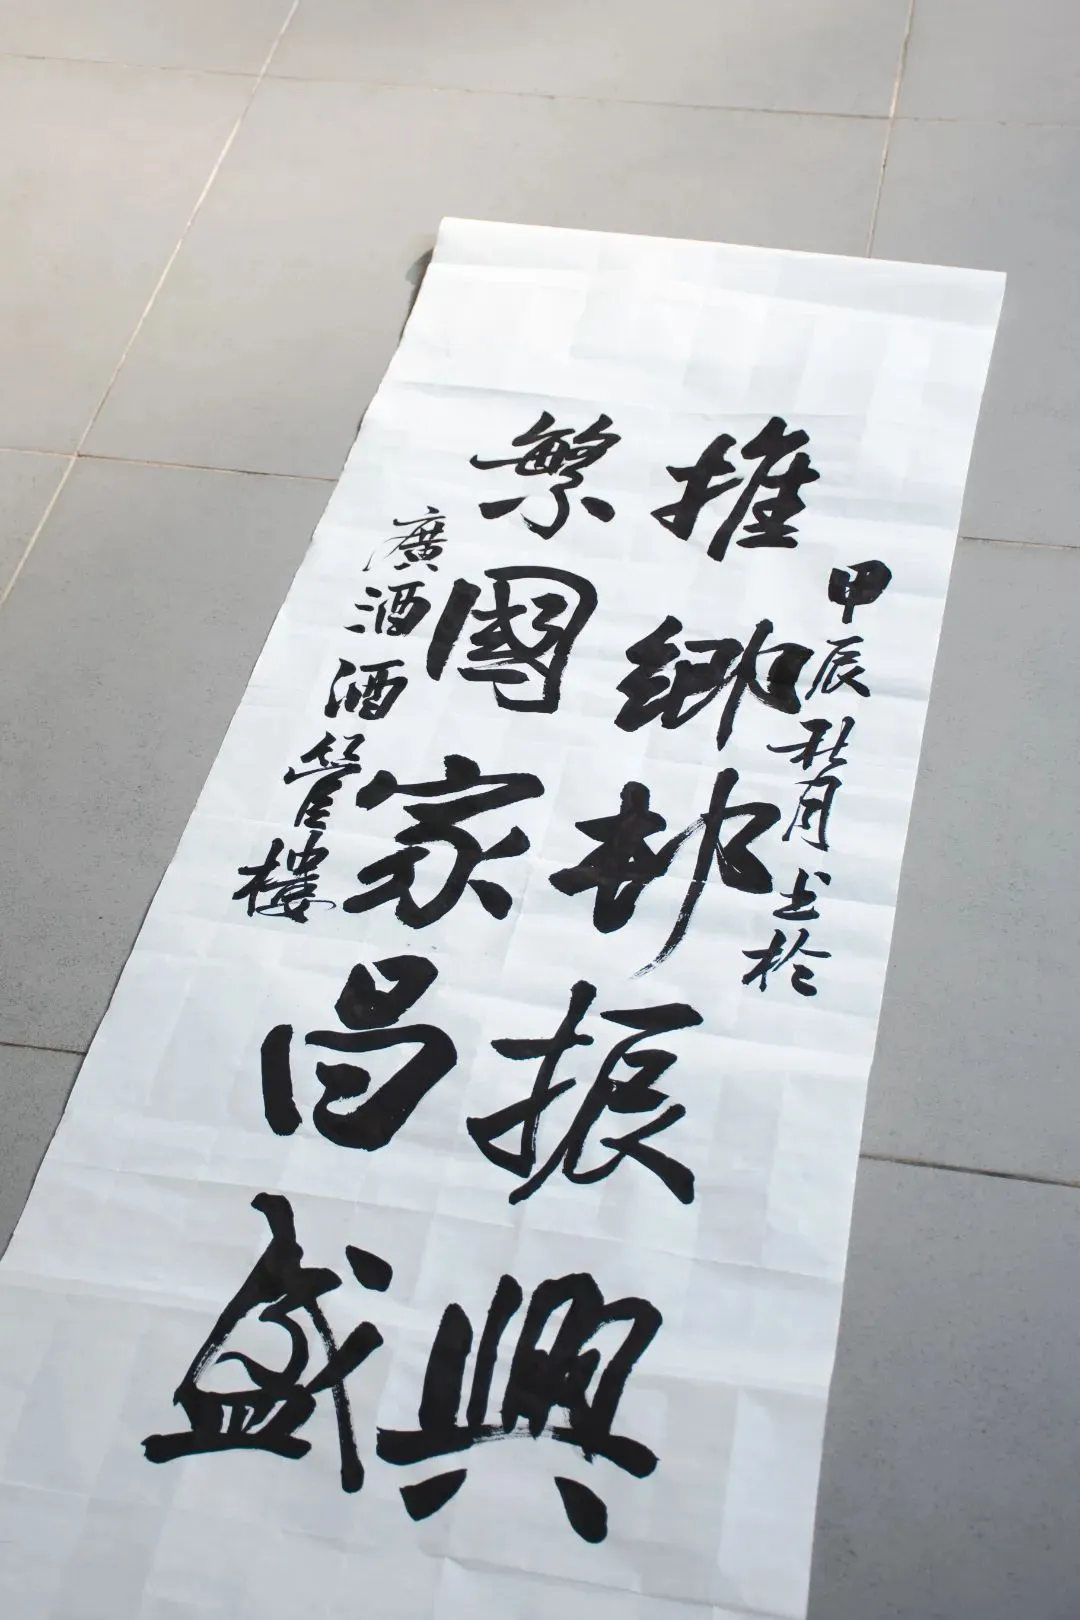 甲辰秋月书於
推鄉村振興
繁國家昌盛
廣酒酒管樓